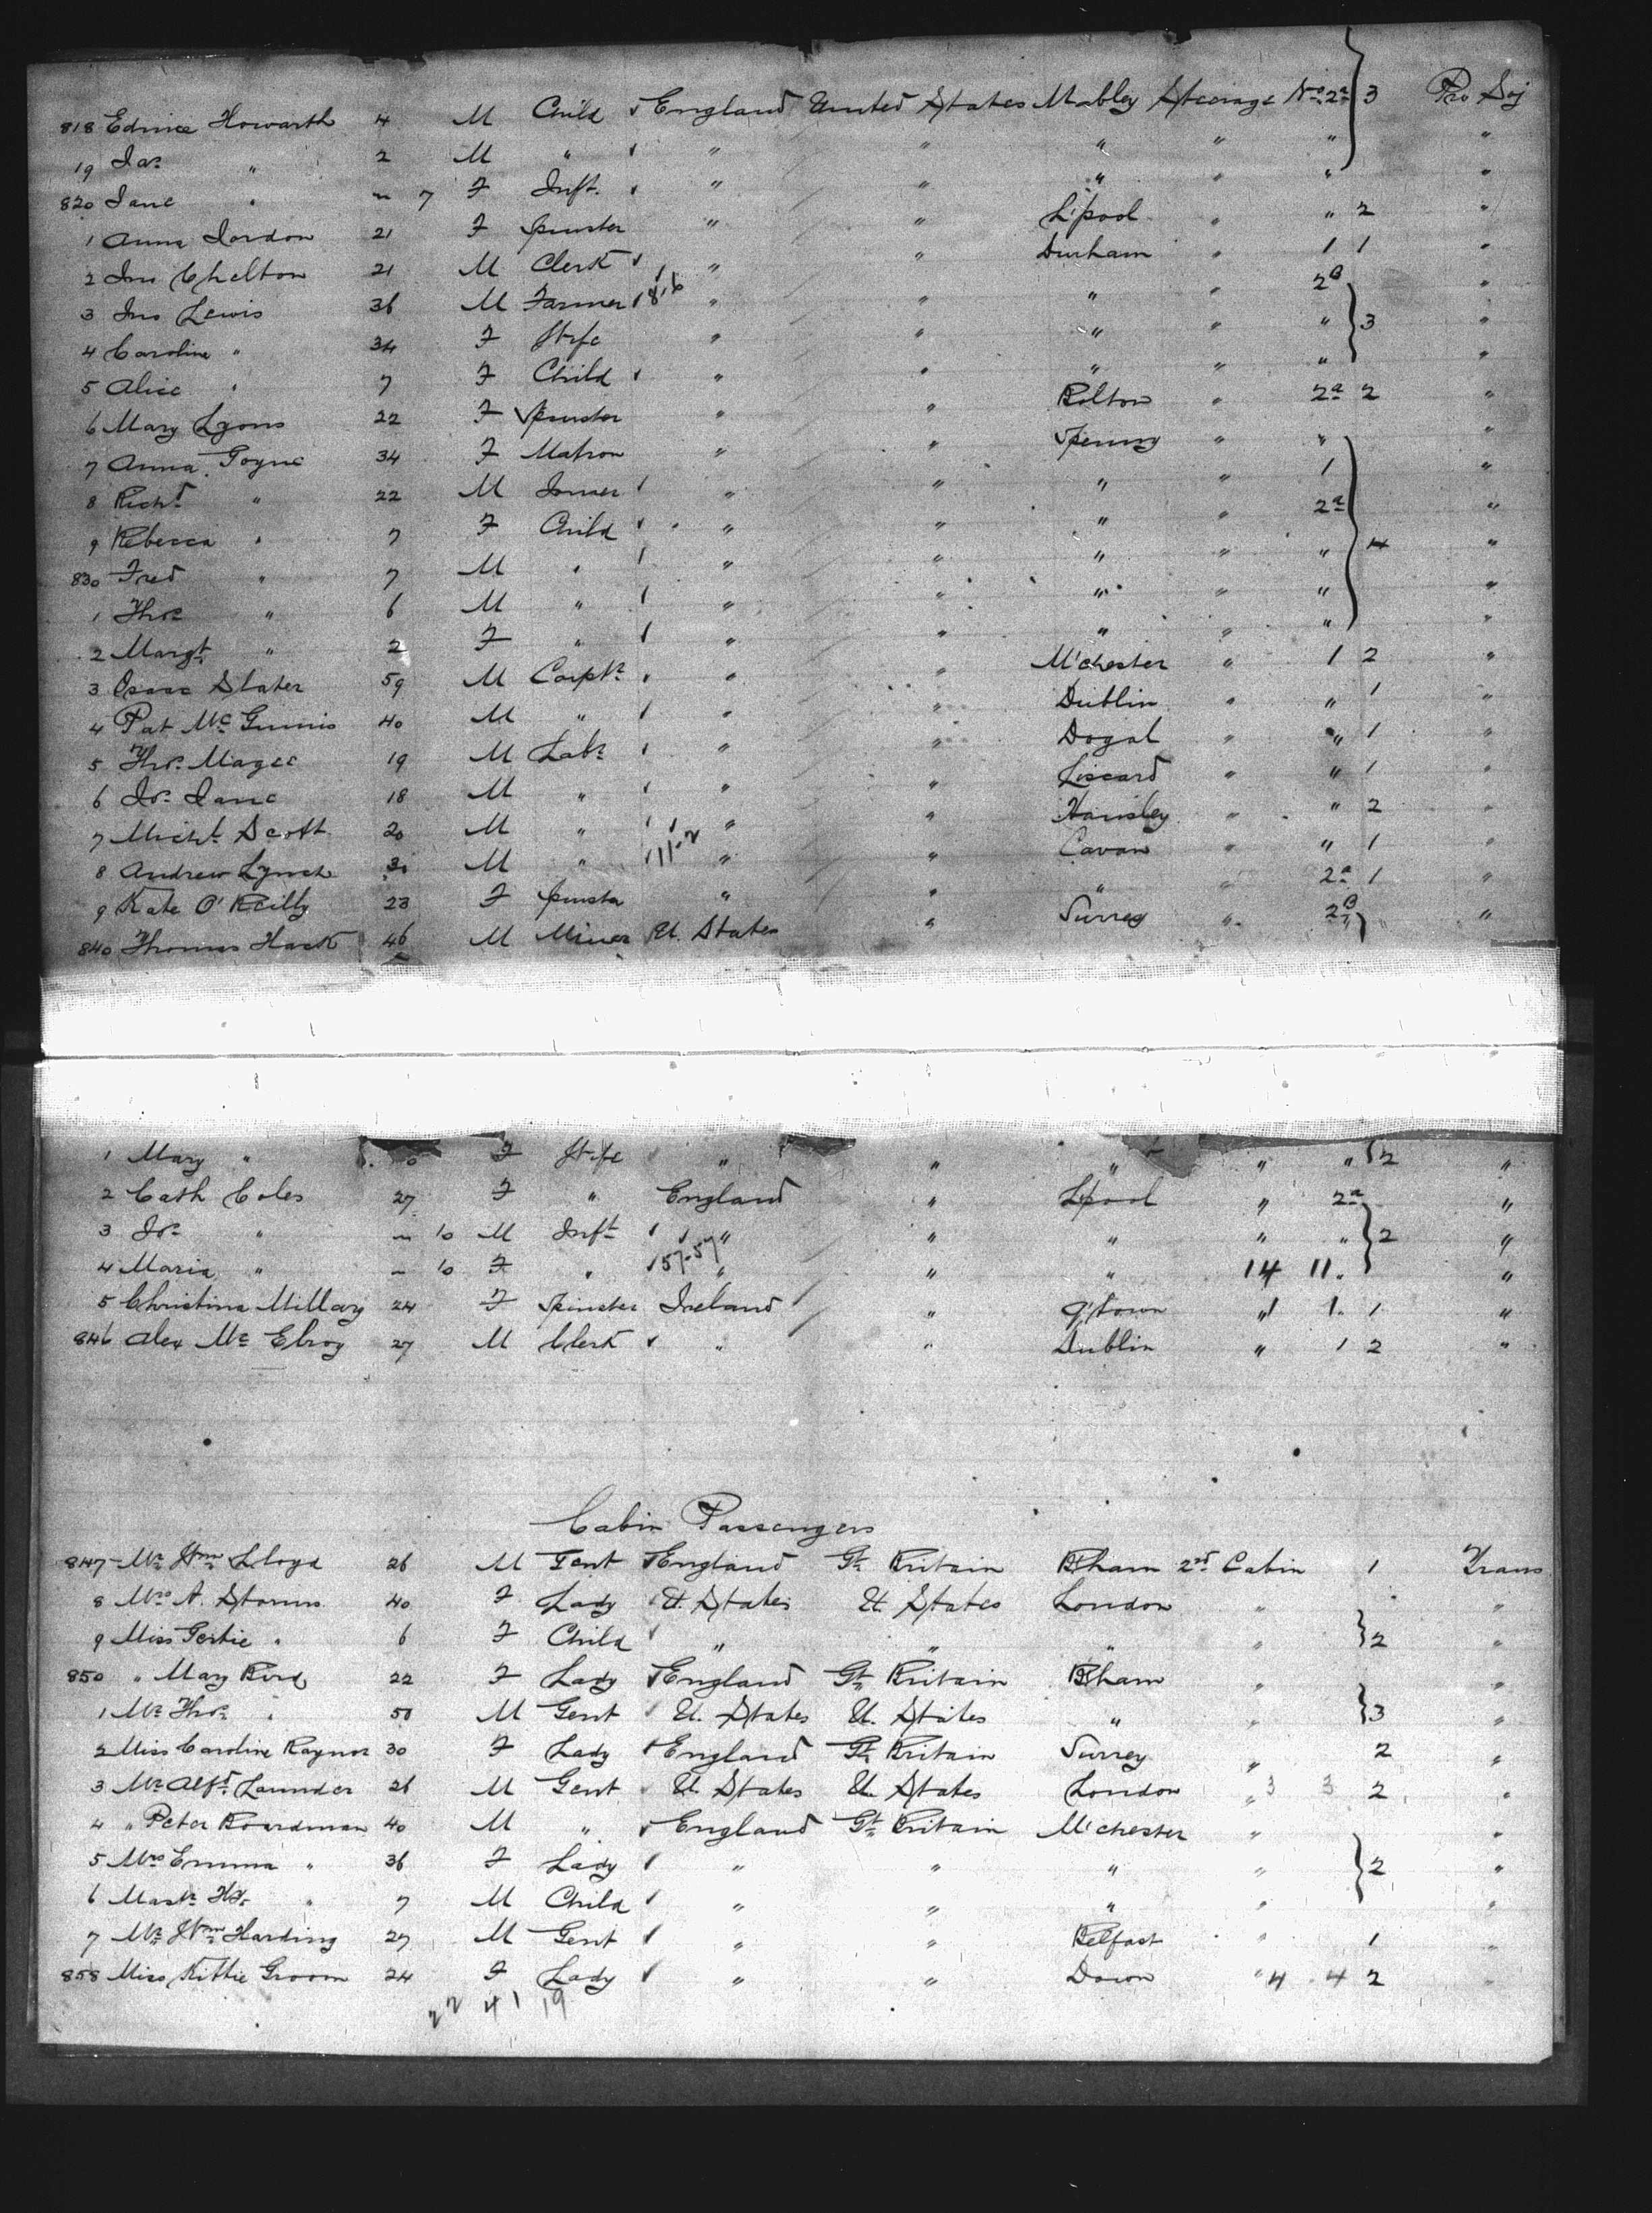 818 Edwice Howarth 4 M Child England United States Mobley Steerage No 2a 3 Pro Soj
19 Jas " 2 M " " " " " " "
820 Jane " m 7 F Inft. " " " " " "
1 Anna Jordon 21 F Spinster " " L'pool " " 2 "
2 Jno Chelton 21 M Clerk " " Durham " 1 1 "
3 Jno Lewis 36 M Farmer 8-6 " " " " 2B "
4 Caroline " 34 F Wife " " " " " 3 "
5 Alice " 7 F Child " " " " " "
6 Mary Lyons 22 F Spinster " " Bolton " 2a 2 "
7 Anna Goyne 34 F Matron " " Spenny " " "
8 Richd " 22 M Joiner " " " " 1 "
9 Rebecca " 7 F Child " " " " 2a "
830 Fred " 7 M " " " " " " 4 "
1 Thos " 6 M " " " " " " "
2 Margt " 2 F " " " " " " "
3 Isaac Slater 59 M Carptr " " M'chester " 1 2 "
4 Pat Mc Ginnis 40 M " " " Dublin " " 1 "
5 Thos. Magee 19 M Labr " " Dogal " " 1 "
6 Jos. Jane 18 M " " " Liscard " " 1 "
7 Michl Scott 20 M " " " " " 2 "
8 Andrew Lynch M " 11-2 " " Cavan " " 1 "
9 Kate O'Reilly 23 F Spinster " " " " 2a 1 "
840 Thomas Hack 46 M Miner U. States " Surrey " 2B "
1 Mary " F Wife " " " " " 2 "
2 Cath Coles 27 F " England " L'pool " 2a "
3 Jos " m 10 M Inft " " " " " 2 "
4 Maria " m 10 F " 57-57 " " " 14 11 "
5 Christina Millary 24 F Spinster Ireland " Q'town " 1 1 1 "
846 Alex Mc Elroy 27 M Clerk " " Dublin " 1 2 "
Cabin Passengers
847 Mr Wm Lloyd 26 M Gent England Gt Britain B'ham 2nd Cabin 1 Trans
8 Mrs A. Storms 40 F Lady U. States U. States London " "
9 Miss Gertie " 6 F Child " " " " 2 "
850 " Mary Bird 22 F Lady England Gt Britain B'ham " "
1 Mr Thos. " 50 M Gent U. States U. States " " 3 "
2 Miss Caroline Raynor 30 F Lady England Gt Britain Surrey " 2 "
3 Mr Alfd Launder 26 M Gent U. States U. States London " 3 3 2 "
4 " Peter Boardman 40 M " England Gt Britain M'chester " "
5 Mrs Emma " 36 F Lady " " " " 2 "
6 Mastr Hy. " 7 M Child " " " " "
7 Mr Wm Harding 27 M Gent " " Belfast " 1 "
858 Miss Kittie Groom 24 F Lady " " Down " 4 4 2 "
22 41 19